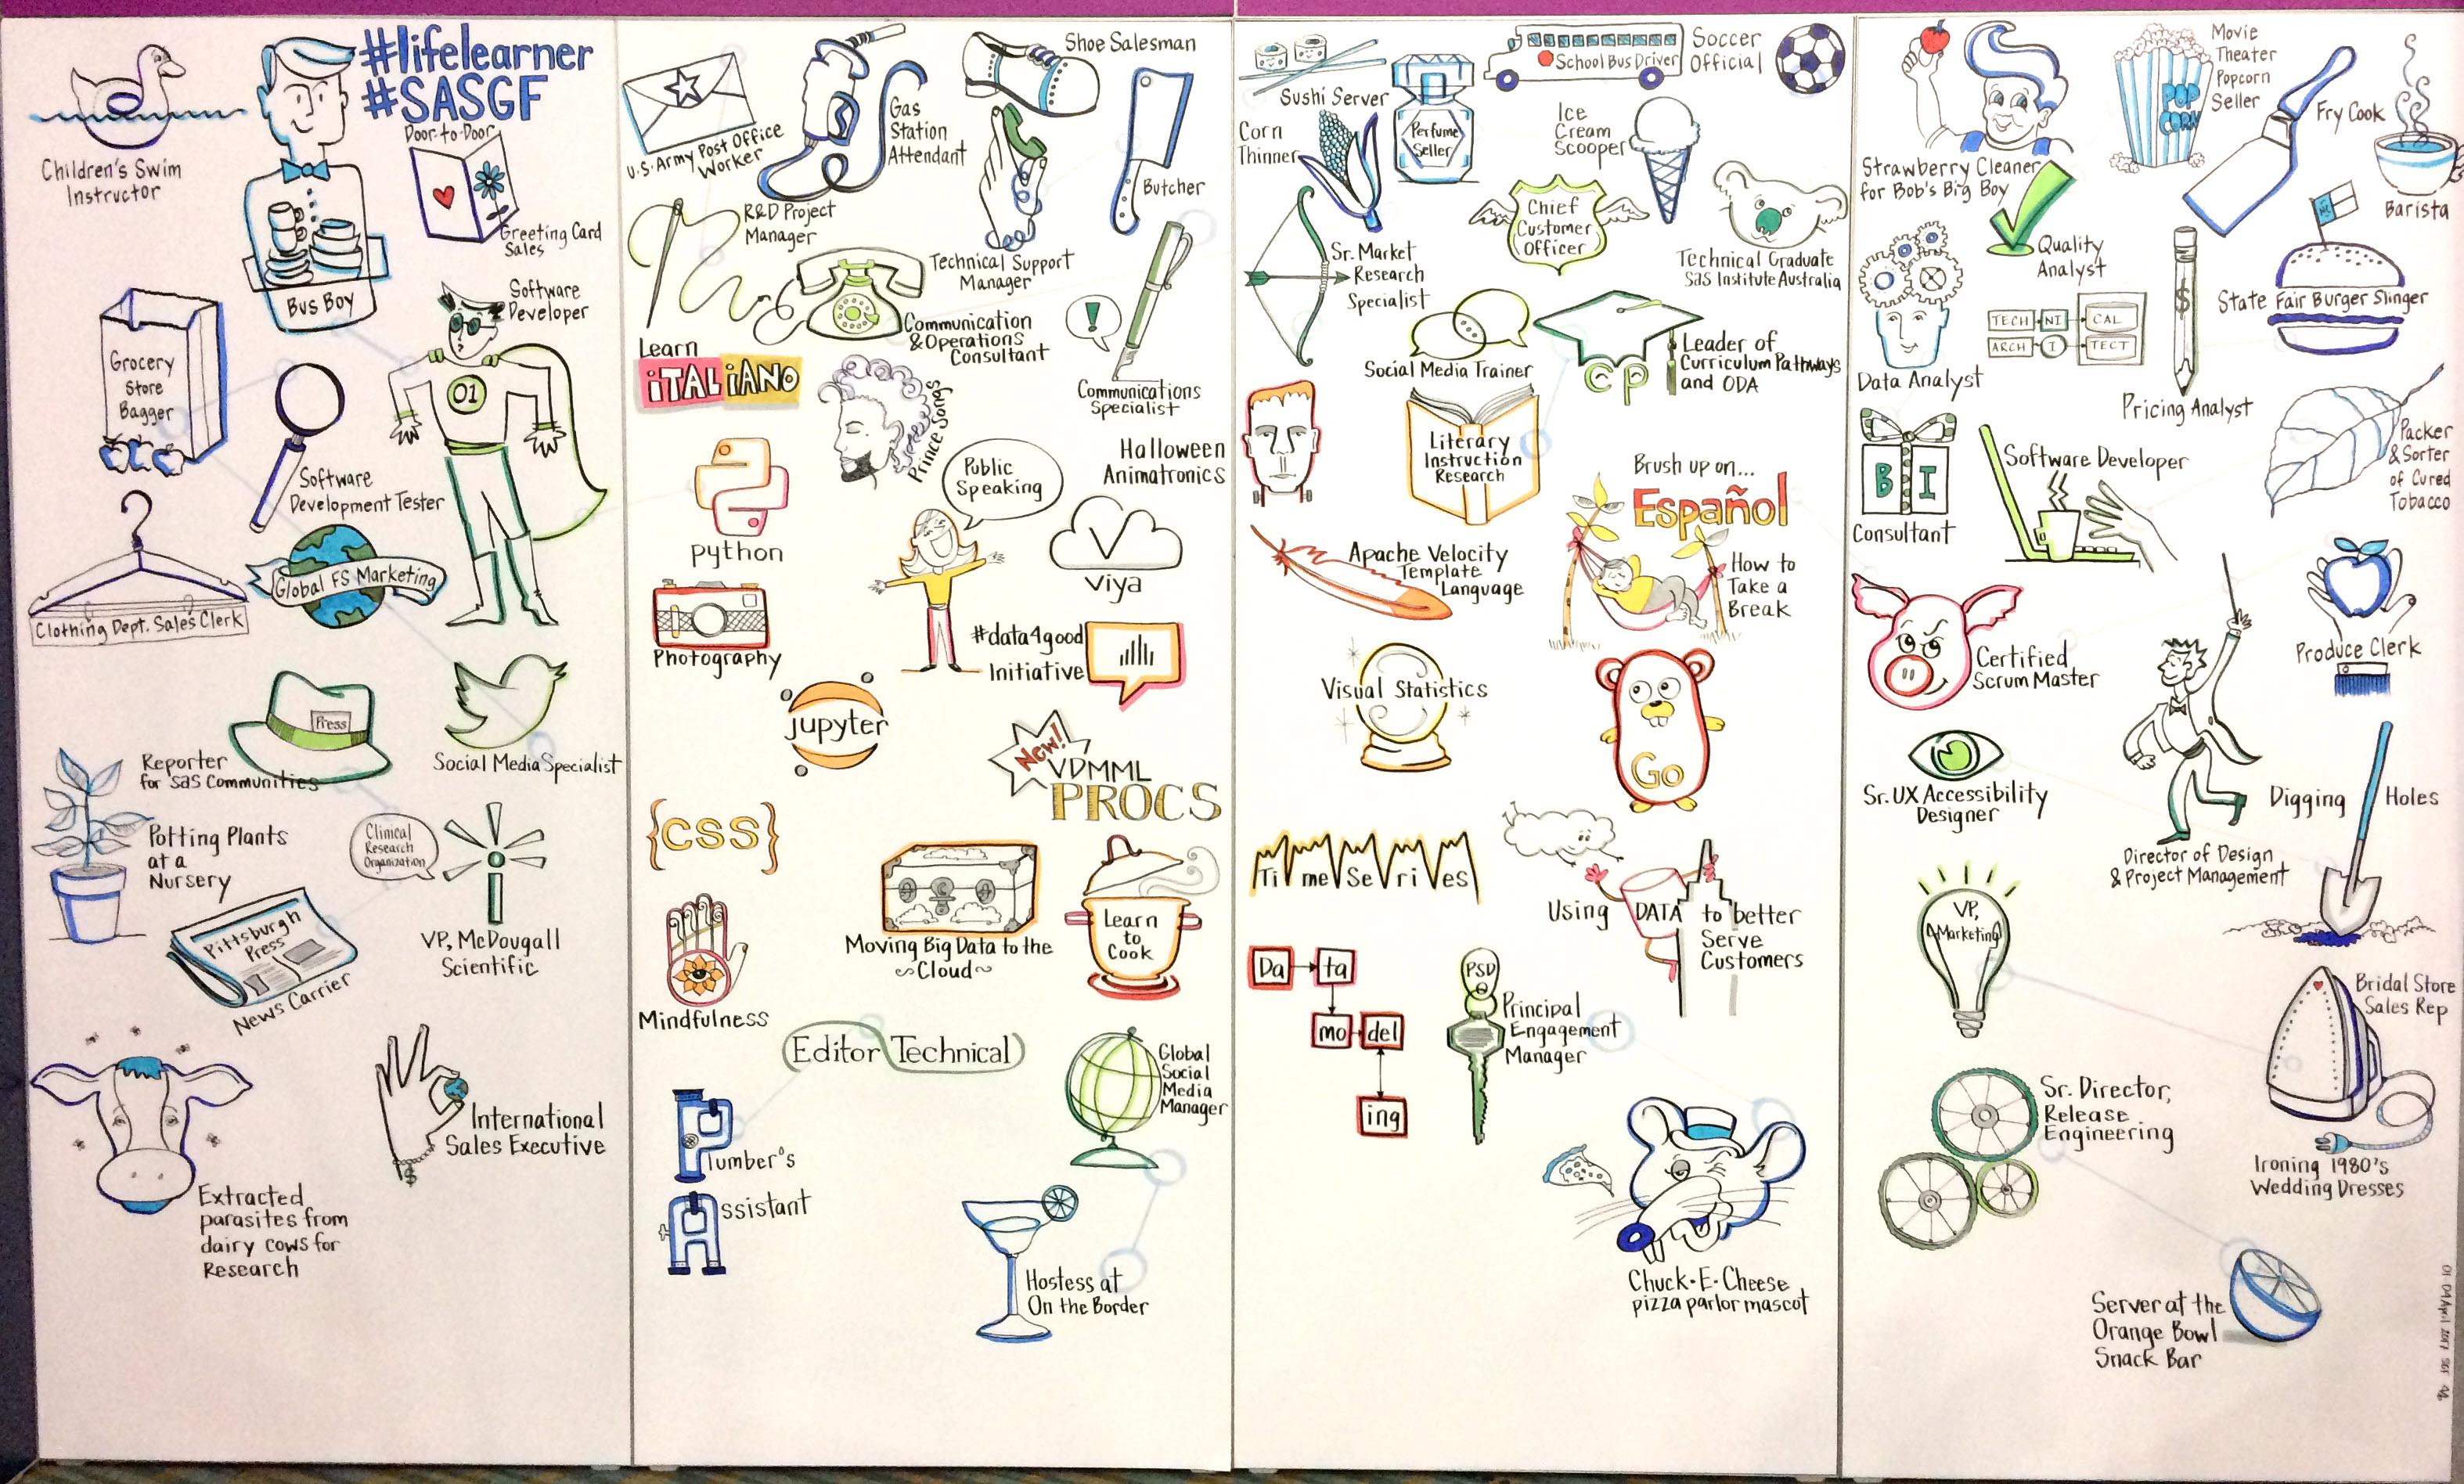 #lifelearner
#SASGF
Children's Swim
Instructor
Bus Boy
Door-to-Door
Greeting Card
Sales
Grocery
Store
Bagger
Software
Developer
01
Software
Development Tester
Clothing Dept. Sales Clerk
Global FS Marketing
Press
Reporter
for SAS Communities
Social Media Specialist
Potting Plants
at a
Nursery
Clinical
Research
Organization
VP, McDougall
Scientific
Pittsburgh
Press
News Carrier
Extracted
parasites from
dairy cows for
Research
International
Sales Executive
$
U.S. Army Post Office
Worker
Gas
Station
Attendant
Shoe Salesman
Butcher
R&D Project
Manager
Technical Support
Manager
Communication
& Operations
Consultant
!
Communications
Specialist
Learn
iTALiANO
Prince Songs
Public
Speaking
Halloween
Animatronics
python
Viya
Photography
#data4good
Initiative
jupyter
New!
VDMML
PROCS
{CSS}
Moving Big Data to the
~Cloud~
Learn
to
Cook
Mindfulness
Editor Technical
Global
Social
Media
Manager
Plumber's
Assistant
Hostess at
On the Border
Sushi Server
Perfume
Seller
School Bus Driver
Soccer
Official
Corn
Thinner
Ice
Cream
Scooper
Chief
Customer
Officer
Technical Graduate
SAS Institute Australia
Sr. Market
Research
Specialist
Social Media Trainer
CP
Leader of
Curriculum Pathways
and ODA
Literary
Instruction
Research
Brush up on...
Español
How to
Take a
Break
Apache Velocity
Template
Language
Visual Statistics
Go
Time Series
Using DATA to better
Serve
Customers
Da ta
mo del
ing
PSD
Principal
Engagement
Manager
Chuck-E-Cheese
pizza parlor mascot
Strawberry Cleaner
for Bob's Big Boy
POP
CORN
Movie
Theater
Popcorn
Seller
Fry Cook
Barista
Quality
Analyst
State Fair Burger Slinger
Data Analyst
TECH NI CAL
ARCH I TECT
$
Pricing Analyst
Packer
& Sorter
of Cured
Tobacco
B I
Consultant
Software Developer
Certified
Scrum Master
Produce Clerk
Sr. UX Accessibility
Designer
Director of Design
& Project Management
Digging Holes
VP,
Marketing
Bridal Store
Sales Rep
Ironing 1980's
Wedding Dresses
Sr. Director,
Release
Engineering
Server at the
Orange Bowl
Snack Bar